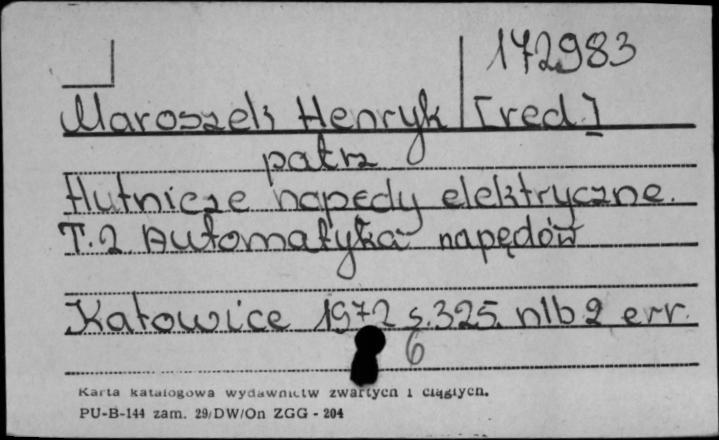 172983
Maroszek Henryk [red.]
patrz
Hutnicze napędy elektryczne.
T.2 Automatyka napędów
Katowice 1972 s.325. nlb 2 err.
6
Karta katalogowa wydawnictw zwartych i ciągłych.
PU-B-144 zam. 29/DW/On ZGG - 204